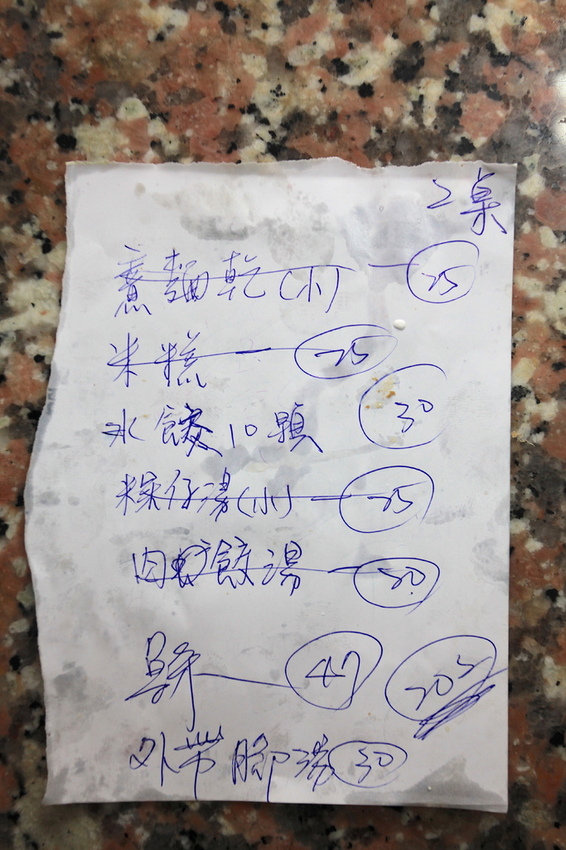 2桌
意麵乾(小) 25
米糕 25
水餃10顆 30
粿仔湯(小) 25
肉餃湯 30
47
外帶 腳湯 30